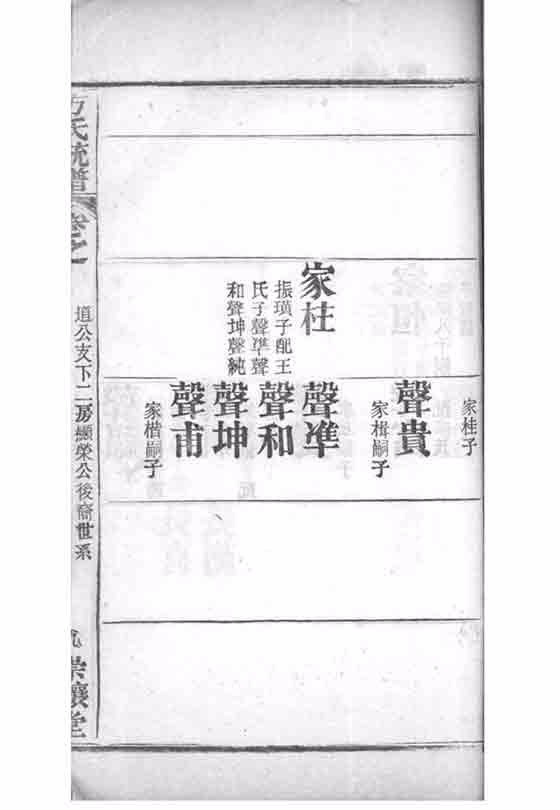 家柱
振璜子配王
氏子聲凖聲
和聲坤聲純
家桂子
聲貴
家楫嗣子
聲凖
聲和
聲坤
聲甫
家楷嗣子
方氏統譜
卷之
道公支下二房顯榮公後裔世系
九
崇讓堂